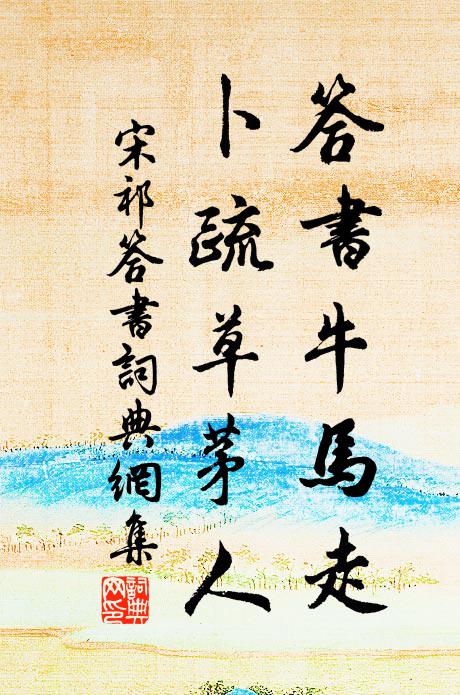 答書牛馬走
卜疏草茅人
宋祁答書詞典網集
詞典